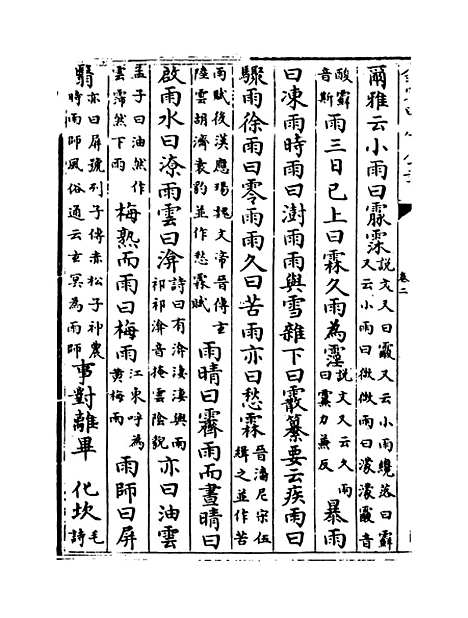 爾雅云小雨曰霡霂説文又曰霢又云小雨纔落曰霹又云小雨曰㣲㣲雨曰濛濛霢音
酸霹音斯雨三日已上曰霖久雨為霪説文又云久雨曰霃力兼反暴雨
曰凍雨時雨曰澍雨雨與雪雜下曰霰纂要云疾雨曰
驟雨徐雨曰零雨雨久曰苦雨亦曰愁霖晉潘尼宋伍緝之並作苦
雨賦後漢應瑒魏文帝晉傅玄陸雲胡濟袁豹並作愁霖賦雨晴曰霽雨而晝晴曰
啟雨水曰潦雨雲曰渰詩曰有渰淒淒興雨祁祁渰音掩雲陰貌亦曰油雲
孟子曰油然作雲霈然下雨梅熟而雨曰梅雨江東呼為黃梅雨雨師曰屏
翳亦曰屏號列子傳赤松子神農時雨師風俗通云玄冥為雨師事對離畢化坎毛詩
卷二